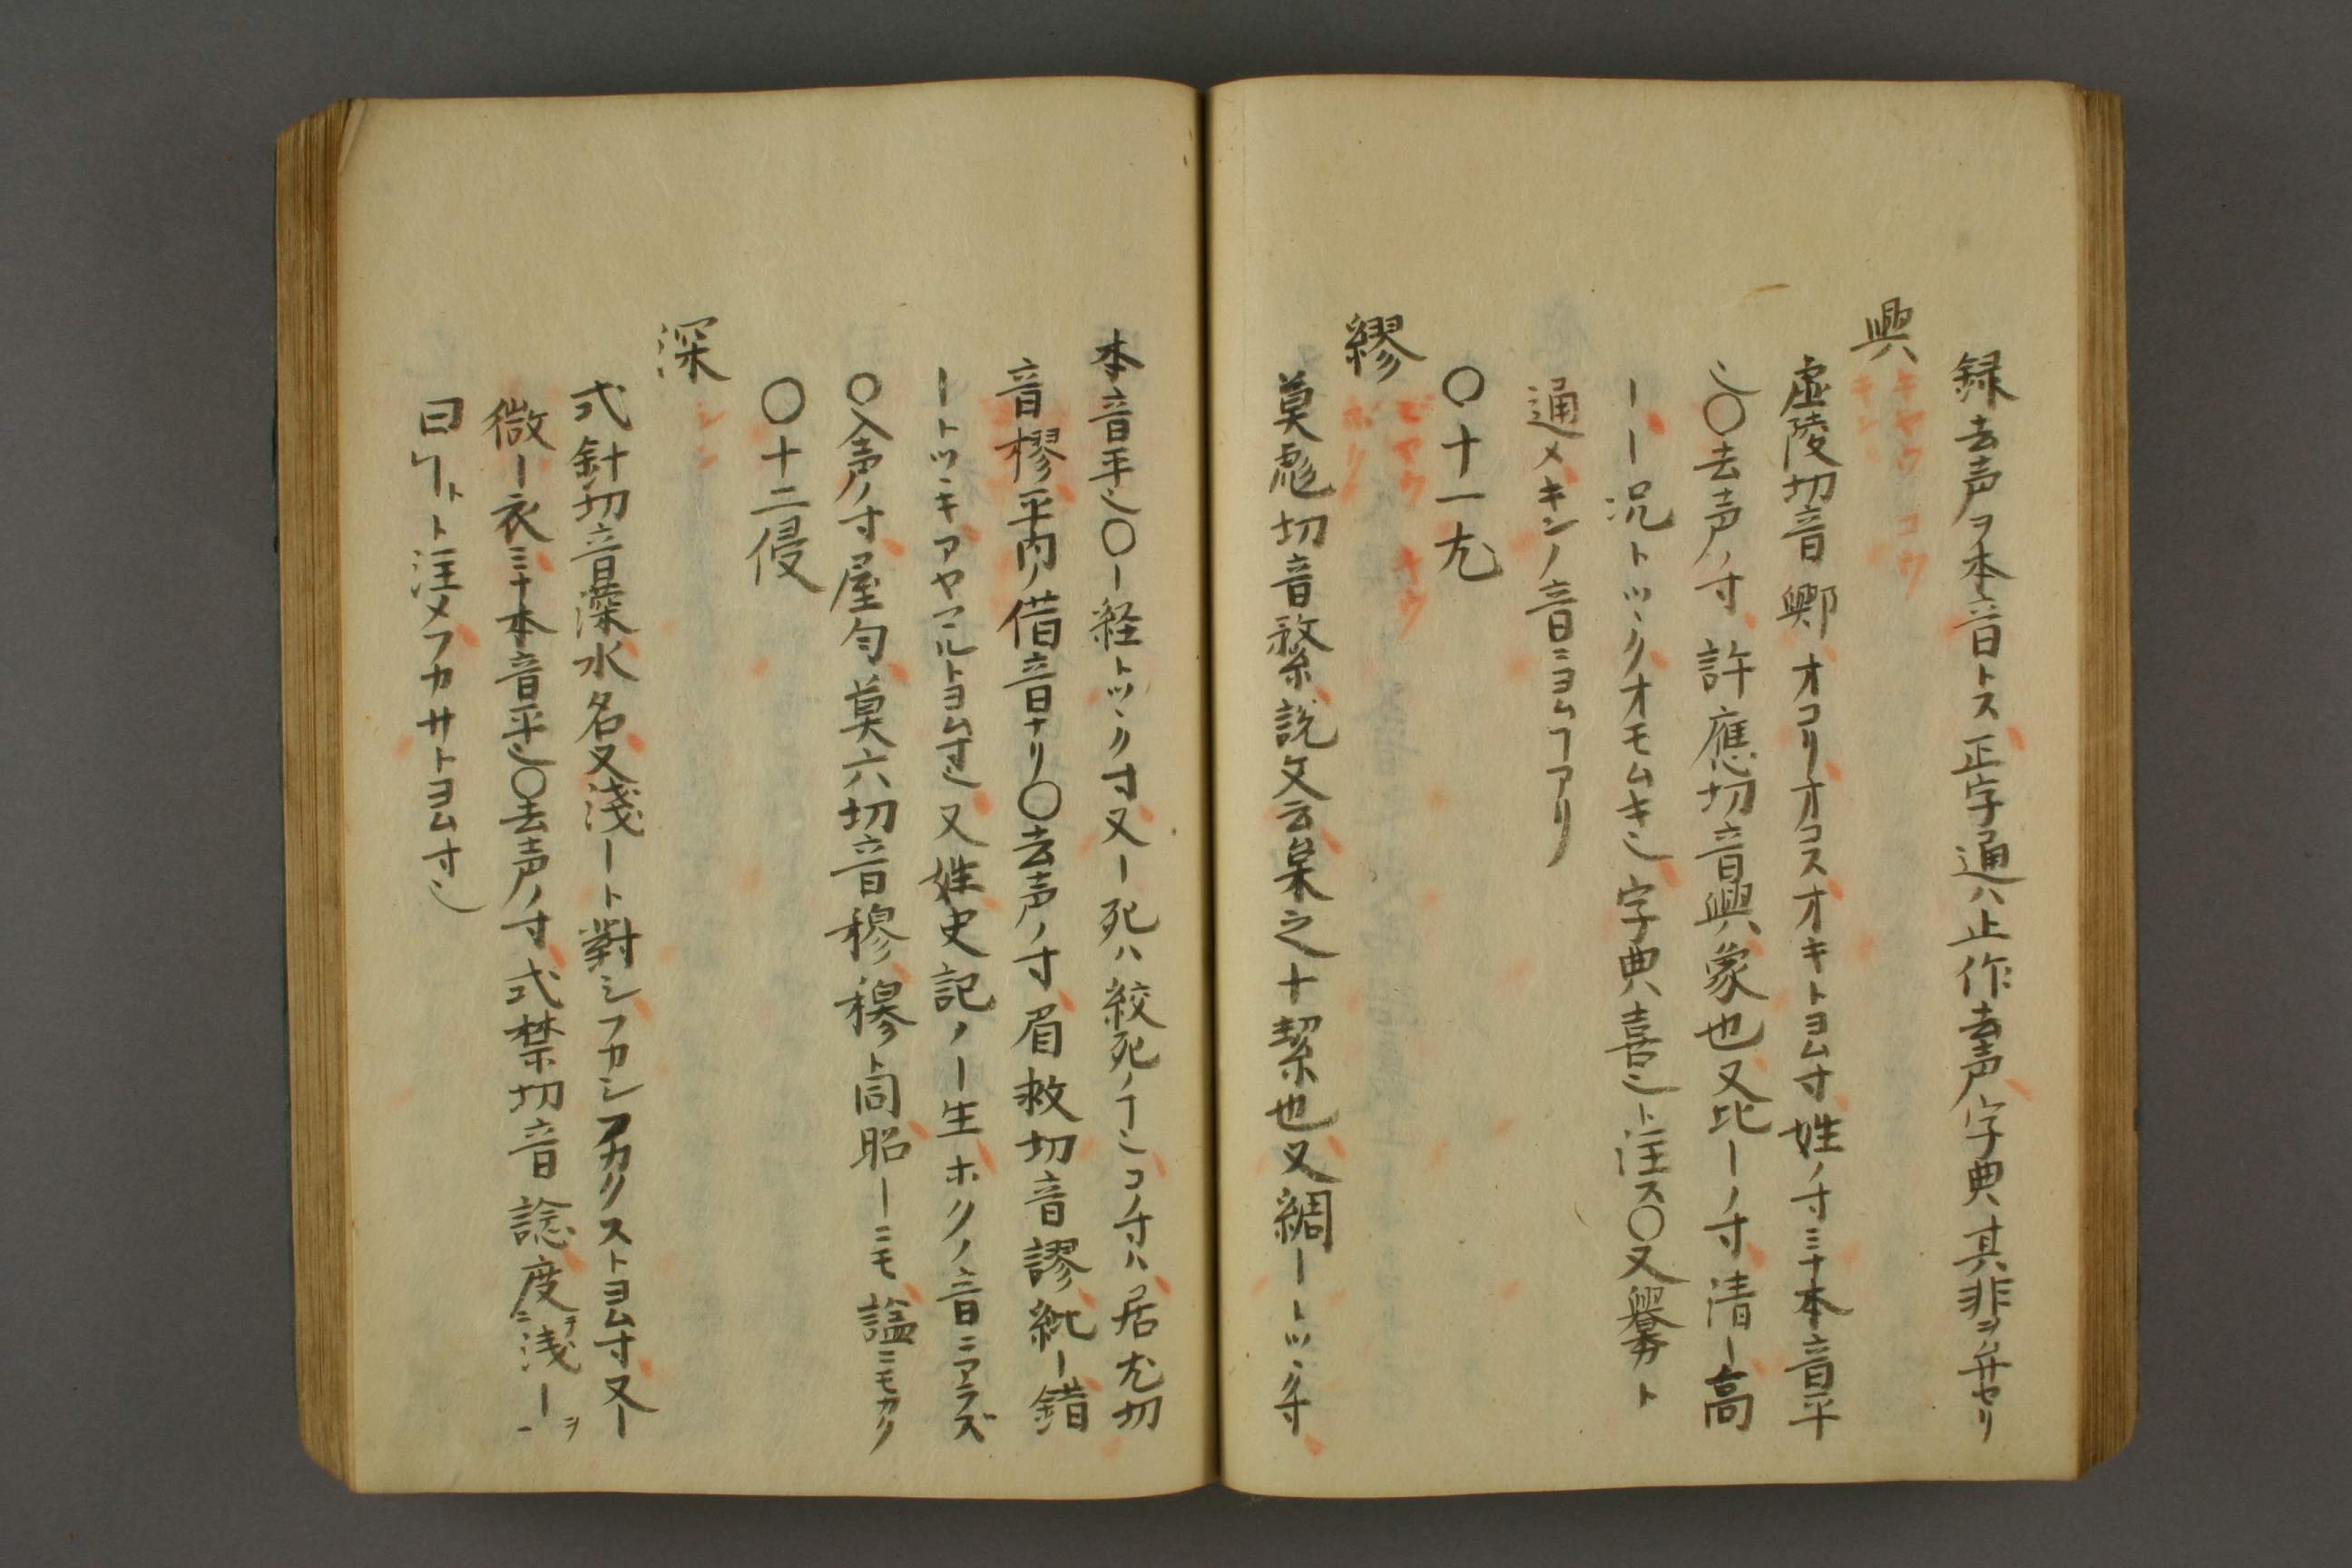 録去声ヲ本音トス正字通ハ止作去声字典其非ヲ弁セリ
興
キヤウ コウ
キン
虚陵切音郷オコリオコスオキトヨム寸姓ノ寸ミナ本音平
也〇去声ノ寸許應切音興象也又比ーノ寸清ー高
ーー况トツヽクオモムキ也字典喜也ト注ス〇又釁ト
通メキンノ音ニヨムヿアリ
〇十一尤
繆
ビヤウ キウ
ボク
莫彪切音繆説文云枲之十絜也又綢ートツヽク寸
本音平也〇ー経トツヽク寸又ー死ハ絞死ノヿ也コノ寸ハ居尤切
音樛平内ノ借音ナリ〇去声ノ寸眉救切音謬紕ー錯
ートツヽキアヤマルトヨム寸也又姓史記ノー生ホクノ音ニアラズ
〇入声ノ寸屋勻莫六切音穆穆ト同昭ーニモ諡ニモカク
〇十二侵
深
シン
式針切音𡩡水名又淺ート對シフカシフカクストヨム寸又ー
微ー衣ミナ本音平也〇去声ノ寸式禁切音諗度ヲ浅ーヲ
曰フト注メフカサトヨム寸也